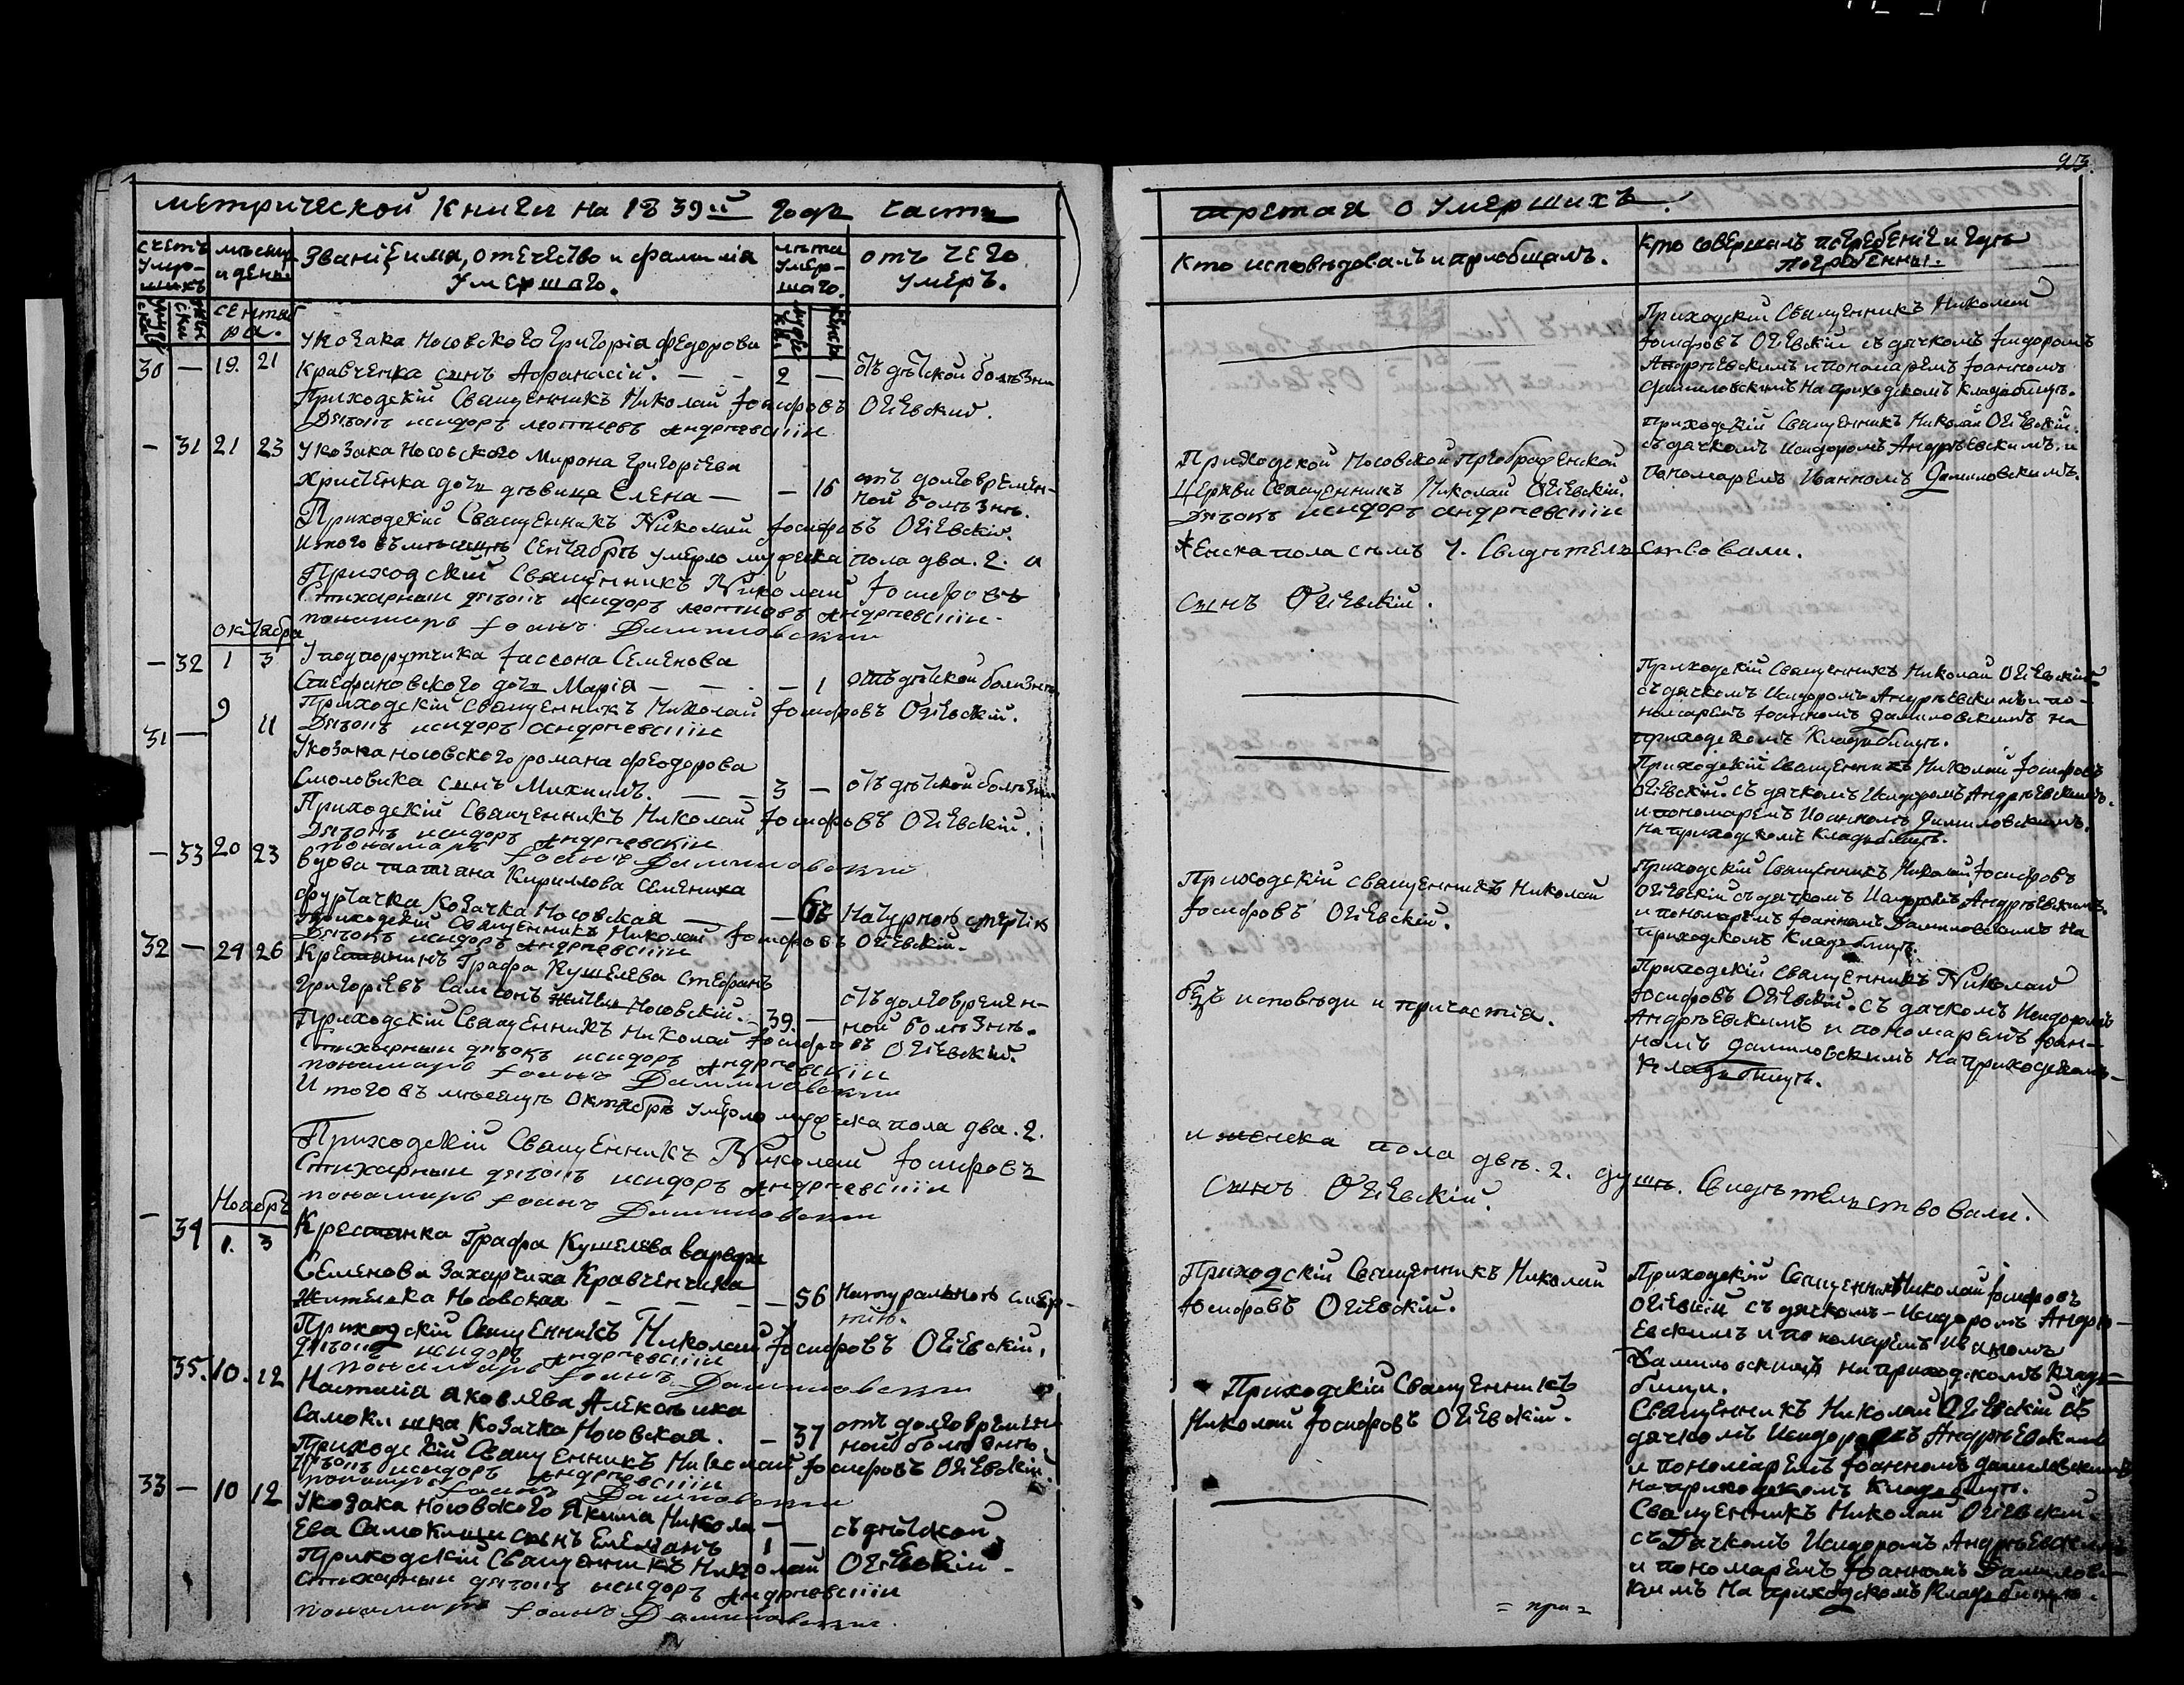 213.
Метрической книги на 1839й годъ часть
счетъ умер-шихъ
мѣсяцъ и день
Званіе, имя, отечество и фамилія
умершаго.
лѣта умер-шаго.
отъ чего
умеръ.
сентяб
ря.
У козака Носовского Григорія Федорова
30 — 19. 21 Кравченка сынъ Афанасій. — — 2 — отъ дѣтской болѣзни
Приходскій Священникъ Николай Іосифовъ Огіевский.
Дячокъ исидоръ Андріевскій
— 31 21 23 У козака Носовского Мирона Григоріева
Христенка дочь дѣвица Елена — — 15 отъ долговремен-
ной болѣзни.
Приходскій Священникъ Николай Іосифовъ Огіевскій.
Итого въ мѣсяцѣ Сентябрѣ умерло мужеска пола два. 2. и
Приходскій Священникъ Николай Іосифовъ
Стихарный дячокъ исидоръ Андріевскій
понамарь Іоаннъ Даниловский
октября
— 32 1 3 У подпоручика Іассона Семенова
Стефановского дочь Марія — — — 1 отъ дѣтской болѣзни
Приходскій Священникъ Николай Іосифовъ Огіевскій.
Дячокъ исидоръ Андріевскій
31 — 9 11
У козака носовского романа феодорова
Смоловика сынъ Михаилъ. — — 3 — отъ дѣтской болѣзни
Приходскій Священникъ Николай Іосифовъ Огіевскій.
Дячокъ исидоръ Андріевскій
понамарь Іоаннъ Даниловский
— 33 20 23 вдова татіана Кириллова Семениха
фурсачка козачка Носовская — —
Натурною смертію
Приходскій Священникъ Николай Іосифовъ Огіевскій.
Дячокъ исидоръ Андріевскій
32 — 24 26 Крестянинъ Графа Кушелева Стефанъ
Григоріевъ Самсонъ житель Носовскій. 39. — отъ долговремен-
ной болѣзни.
Приходскій Священникъ Николай Іосифовъ Огіевский.
Стихарный дячокъ исидоръ Андріевскій
понамарь Іоаннъ Даниловский
Итого въ мѣсяцѣ Октябрѣ умерло мужеска пола два. 2.
Приходскій Священникъ Николай Іосифовъ
Стихарный дячокъ исидоръ Андріевскій
понамарь Іоаннъ Даниловский
Ноябрь
— 34 1. 3 Крестянка Графа Кушелева варвара
Семенова Захарчиха Кравченчиха
Жителька Носовская — — — — 56 Натуральною смер-
тію.
Приходскій Священникъ Николай Іосифовъ Огіевскій.
дячокъ исидоръ Андріевскій
понамарь Іоаннъ Даниловский
35. 10. 12 Настасія яковлева Алексѣиха
козачка Носовская. — 37 отъ долговремен
ной болѣзни.
Приходскій Священникъ Николай Іосифовъ Огіевскій.
дячокъ исидоръ Андріевскій
понамарь Іоаннъ Даниловский
33 — 10 12 У козака носовского Якима Никола-
ева Самокиши сынъ Емельянъ 1 — съ дѣтской
Приходскій Священникъ Николай Огіевскій.
Стихарный дячокъ исидоръ Андріевскій
понамарь Іоаннъ Даниловский
третая о умершихъ.
Кто исповѣдовалъ и пріобщалъ.
Кто совершалъ погребеніе и гдѣ
погребенны.
Приходскій Священникъ Николай
Іосифовъ Огіевскій съ дячкомъ Ісидоромъ
Андрѣевскимъ и пономаремъ Іоанномъ
Даниловскимъ На приходскомъ кладбищѣ.
Приходской Носовской Преображенской
Церкви Священникъ Николай Огіевскій.
Дячокъ исидоръ Андріевскій
приходскій Священникъ Николай Огіевскій.
съ дячкомъ Исидоромъ Андрѣевскимъ, и
пономаремъ Иванномъ Даниловскимъ.
женска пола семъ 7. Свидѣтельствовали.
сынъ Огіевскій.
Приходскій Священникъ Николай Огіевскій
съ дячкомъ Исидоромъ Андрѣевскимъ и по-
номаремъ Іоанномъ Даниловскимъ на
приходскомъ кладбищѣ.
Приходскій Священникъ Николай Іосифовъ
Огіевскій. съ дячкомъ Исидоромъ Андрѣевскимъ.
и пономаремъ Иоанномъ Даниловскимъ.
На приходскомъ кладбищѣ.
Приходскій священникъ Николай
Іосифовъ Огіевскій.
Приходскій Священникъ Николай, Іосифовъ
Огіевскій съ дячкомъ Исидоромъ Андрѣевскимъ.
и пономаремъ Іоанномъ Даниловскимъ на
приходскомъ Кладбищѣ.
безъ исповѣди и причастія.
Приходскій Священникъ Николай
Іосифовъ Огіевскій. съ дячкомъ Исидоромъ
Андрѣевскимъ и пономаремъ Іоан-
номъ Даниловскимъ На приходскомъ-
Кладбищѣ.
и женска пола двѣ. 2. душѣ. Свидѣтельствовали.
Сынъ Огіевскій.
Приходскій Священникъ Николай
Іосифовъ Огіевскій.
Приходскій Священникъ Николай Іосифовъ
Огіевскій съ дячкомъ - Исидоромъ Андрѣ-
евскимъ и пономаремъ Иваномъ
Даниловскимъ на приходскомъ кладъ-
бищи.
Приходскій Священникъ
Николай Іосифовъ Огіевскій.
Священникъ Николай Огіевскій съ
дячкомъ Исидоромъ Андрѣевскимъ
и пономаремъ Іоанномъ Даниловскимъ
на приходскомъ Кладбищѣ.
Священникъ Николай Огіевскій.
съ Дячкомъ Исидоромъ Андрѣевскимъ
и пономаремъ Іоанномъ Даниловс-
кимъ На приходскомъ Кладбищѣ.
= при =